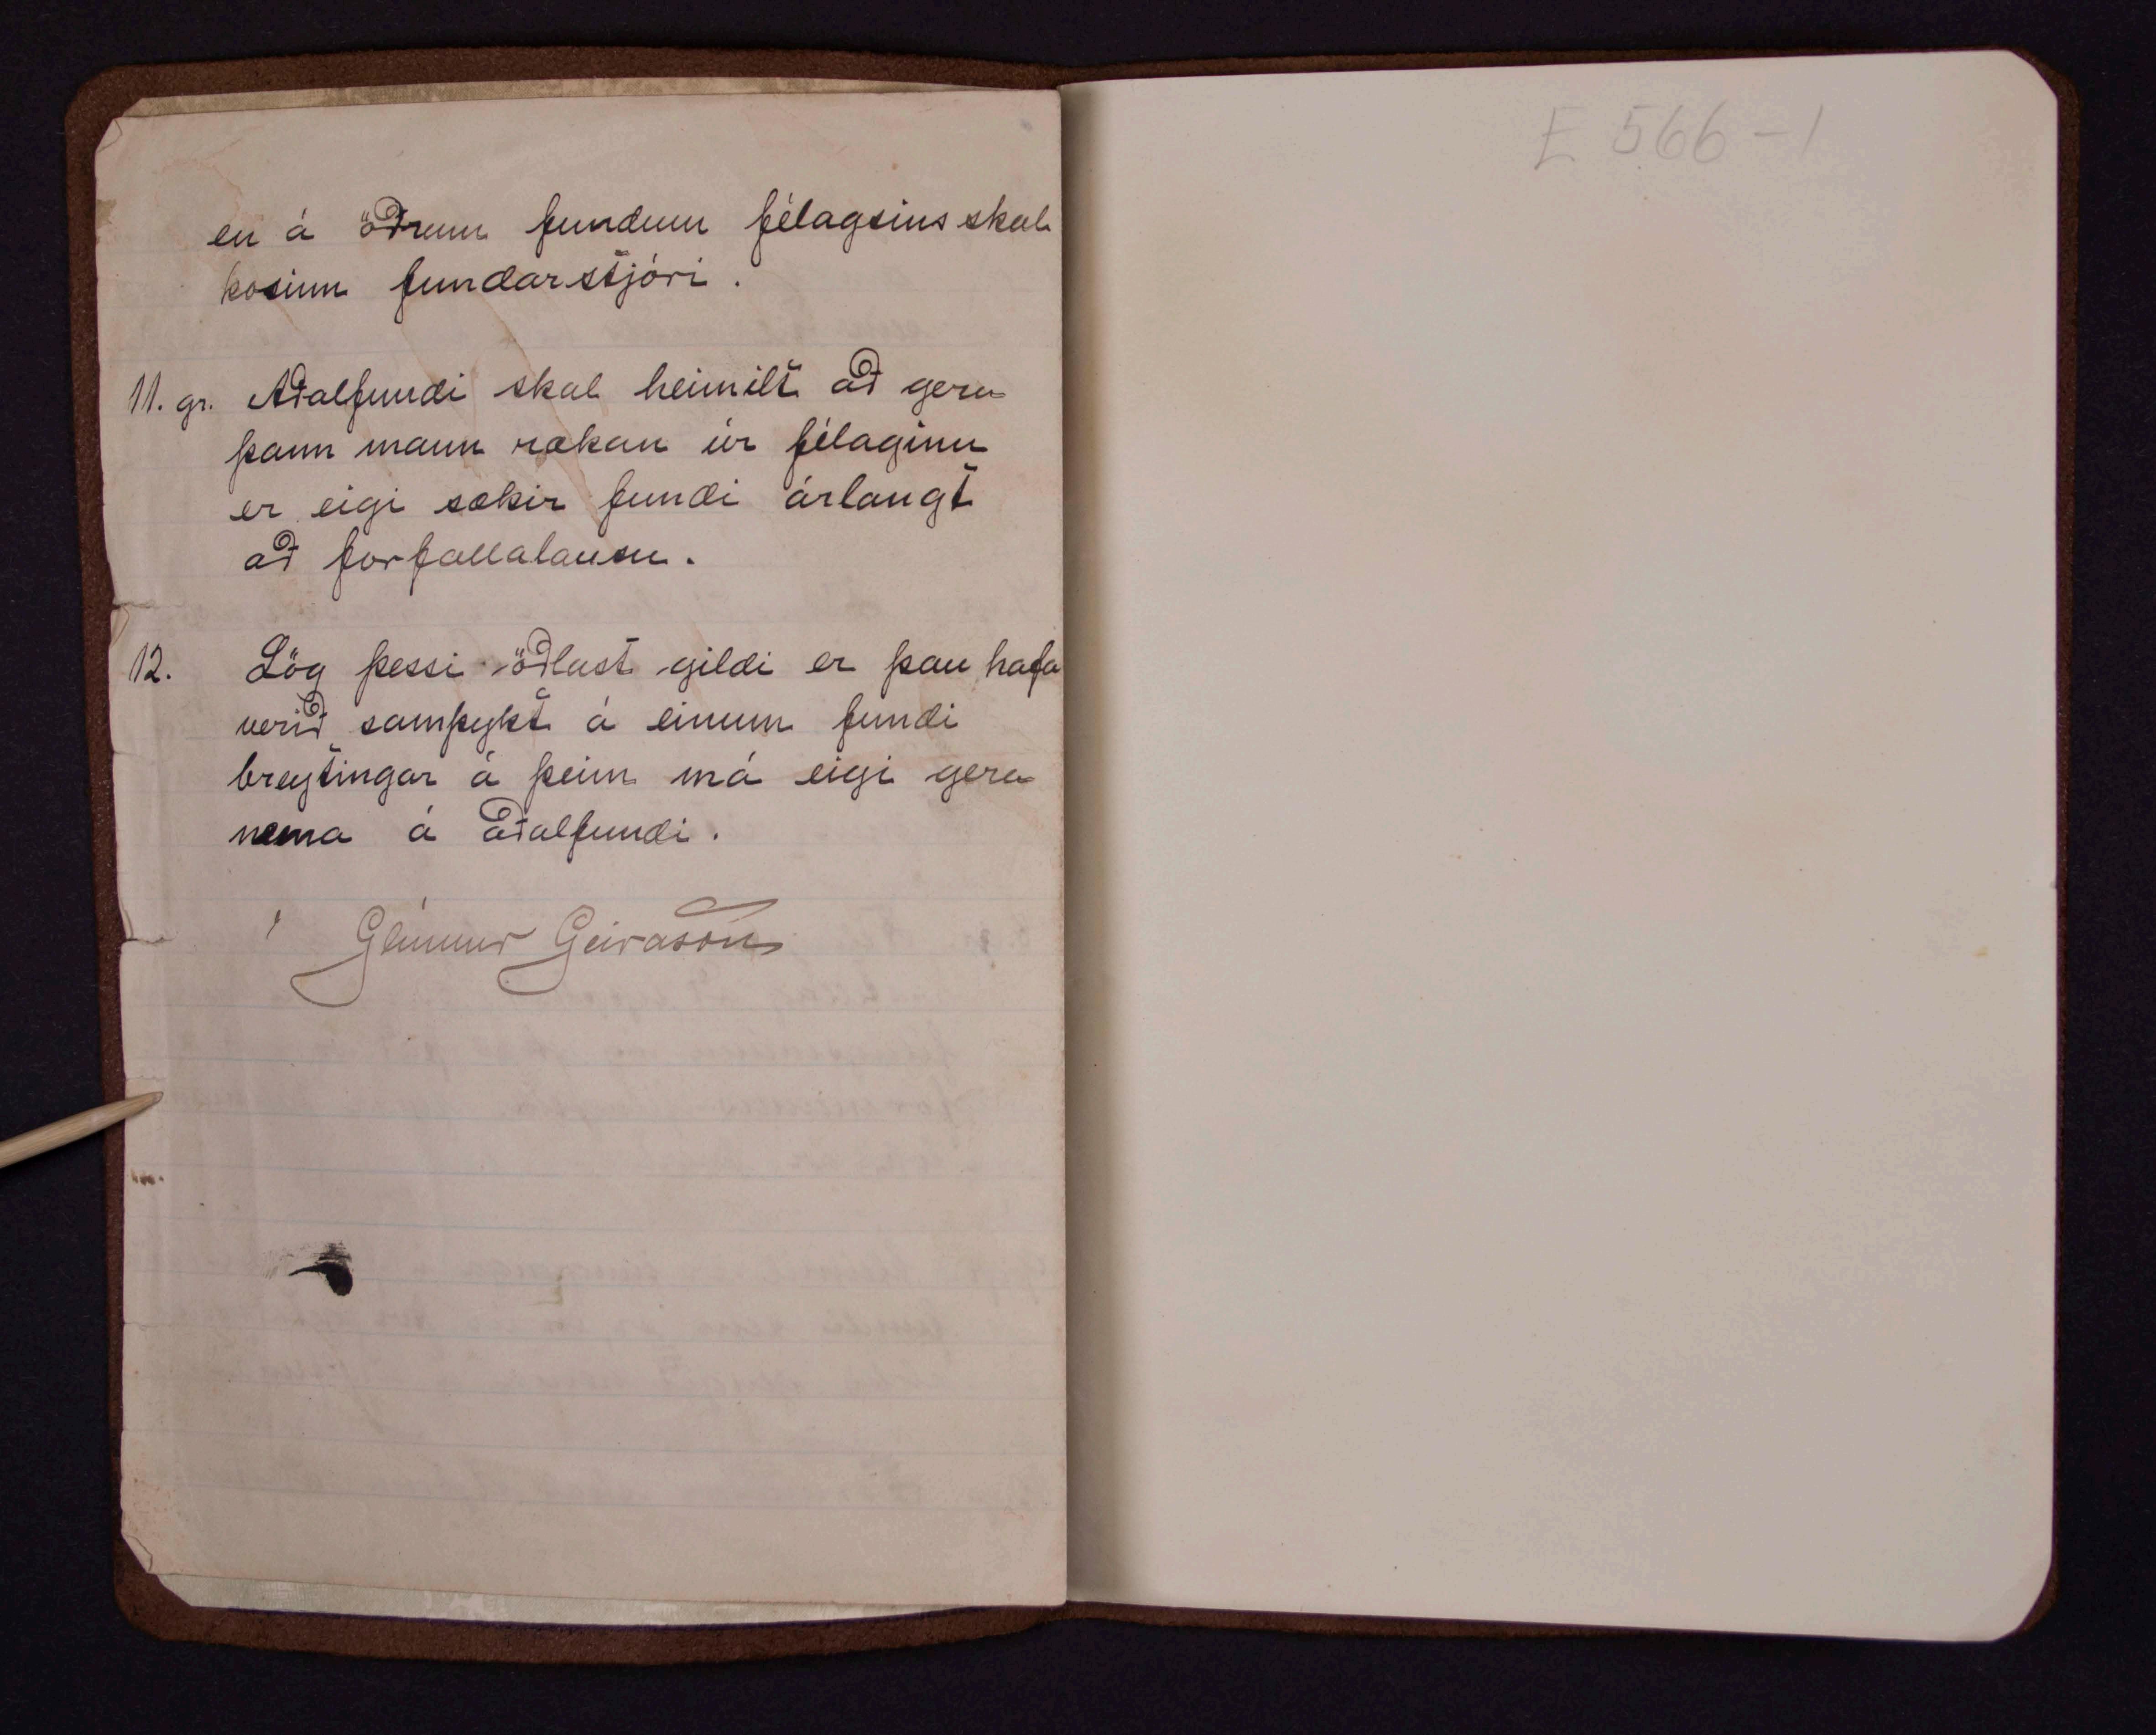 en á öðrum fundum félagsins skal
kosinn fundarstjóri.
11. gr. Aðalfundi skal heimilt að gera
þann mann rækan úr félaginu
er eigi sækir fundi árlangt
að forfallalausu.
12. Lög þessi öðlast gildi er þau hafa
verið samþykt á einum fundi
breytingar á þeim má eigi gera
nema á aðalfundi.
Geirason
E 566-1